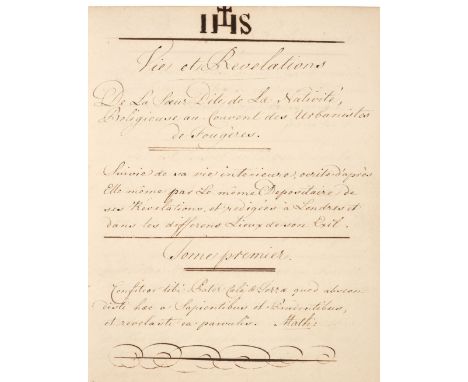 IHS
Vie et Révelations
De La Sœur Dite de La Nativité,
Religieuse au Couvent des Urbanistes
de Fougères.
Suivie de sa vie interieure, ecrite d'après
Elle même par Le même Depositaire de
ses Révelations, et rédigées à Londres et
dans les differens Lieux de son Exil.
Tome premier.
Confiteor tibi Pater Celi & Terra quod abscon
disti hæc a Sapientibus et Prudentibus,
et revelasti ea parvulis. Math: